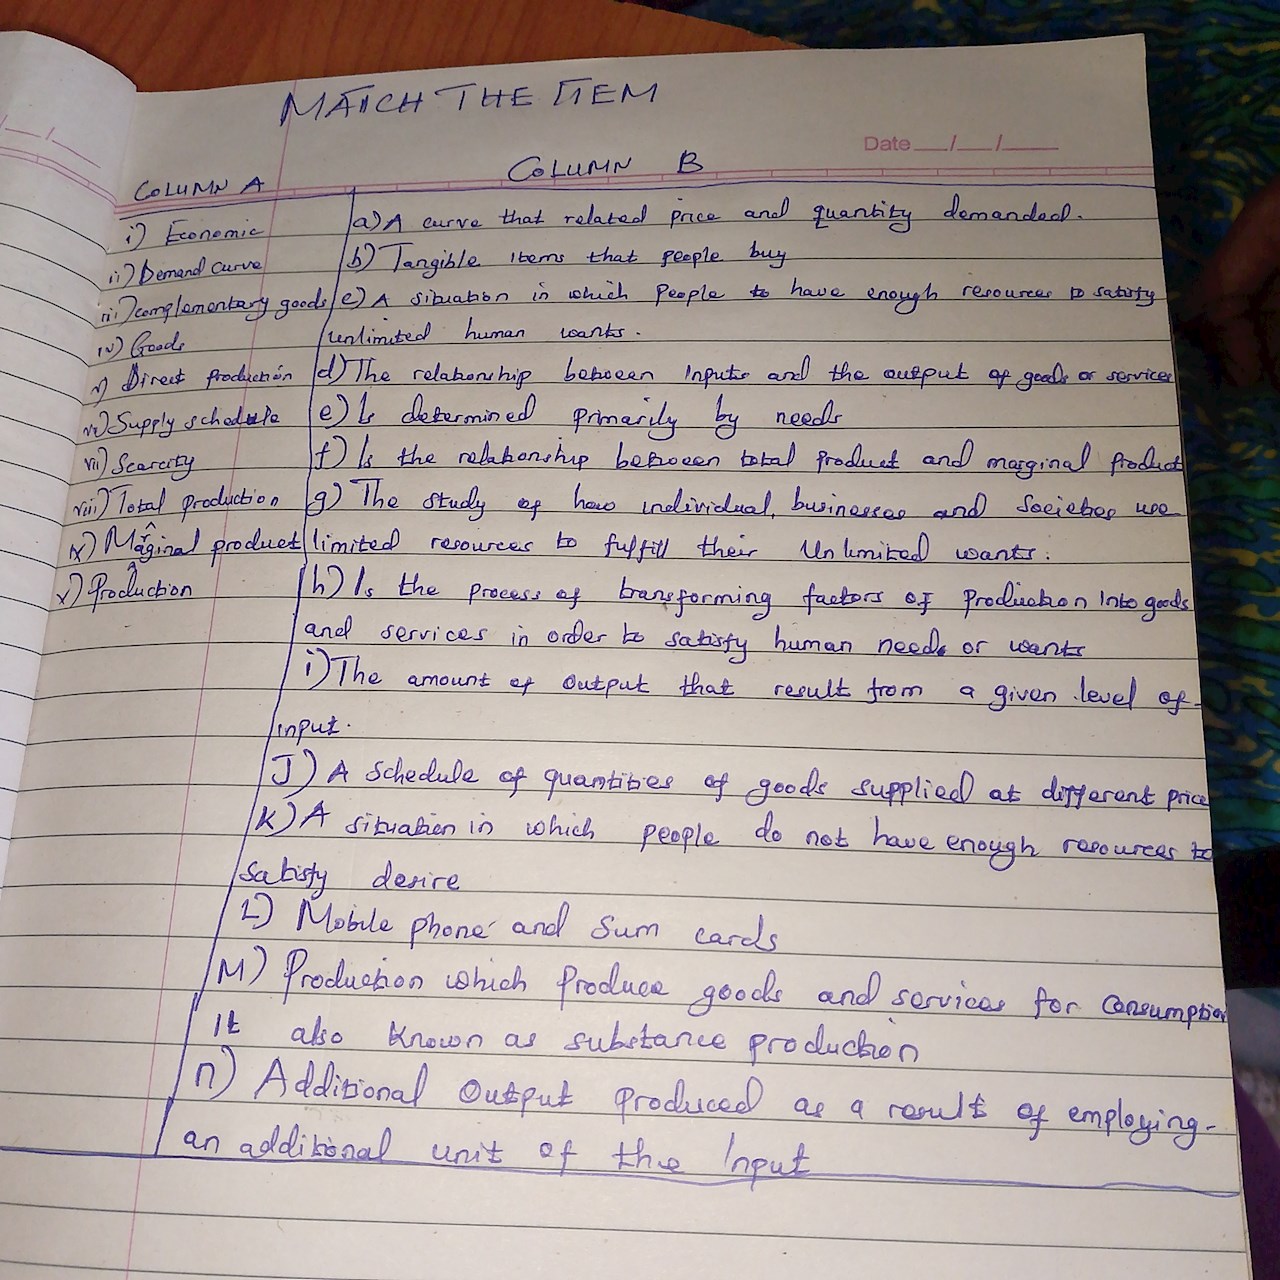 MATCH THE ITEM
Date __/__/____
COLUMN A
COLUMN B
i) Economic
ii) Demand curve
iii) complementary goods
iv) Goods
v) Direct production
vi) Supply schedule
vii) Scarcity
viii) Total production
ix) Marginal product
x) Production
a) A curve that related price and quantity demanded.
b) Tangible items that people buy
c) A situation in which people to have enough resources to satisfy
unlimited human wants.
d) The relationship between Inputs and the output of goods or services
e) Is determined primarily by needs
f) Is the relationship between total product and marginal product
g) The study of how individual, businesses and Societies use
limited resources to fulfill their Unlimited wants.
h) Is the process of transforming factors of production Into goods
and services in order to satisfy human needs or wants
i) The amount of output that result from a given level of
input.
J) A schedule of quantities of goods supplied at different price
K) A situation in which people do not have enough resources to
satisfy desire
L) Mobile phone and Sum cards
M) Production which produce goods and services for consumption
It also known as substance production
n) Additional Output produced as a result of employing-
an additional unit of the Input